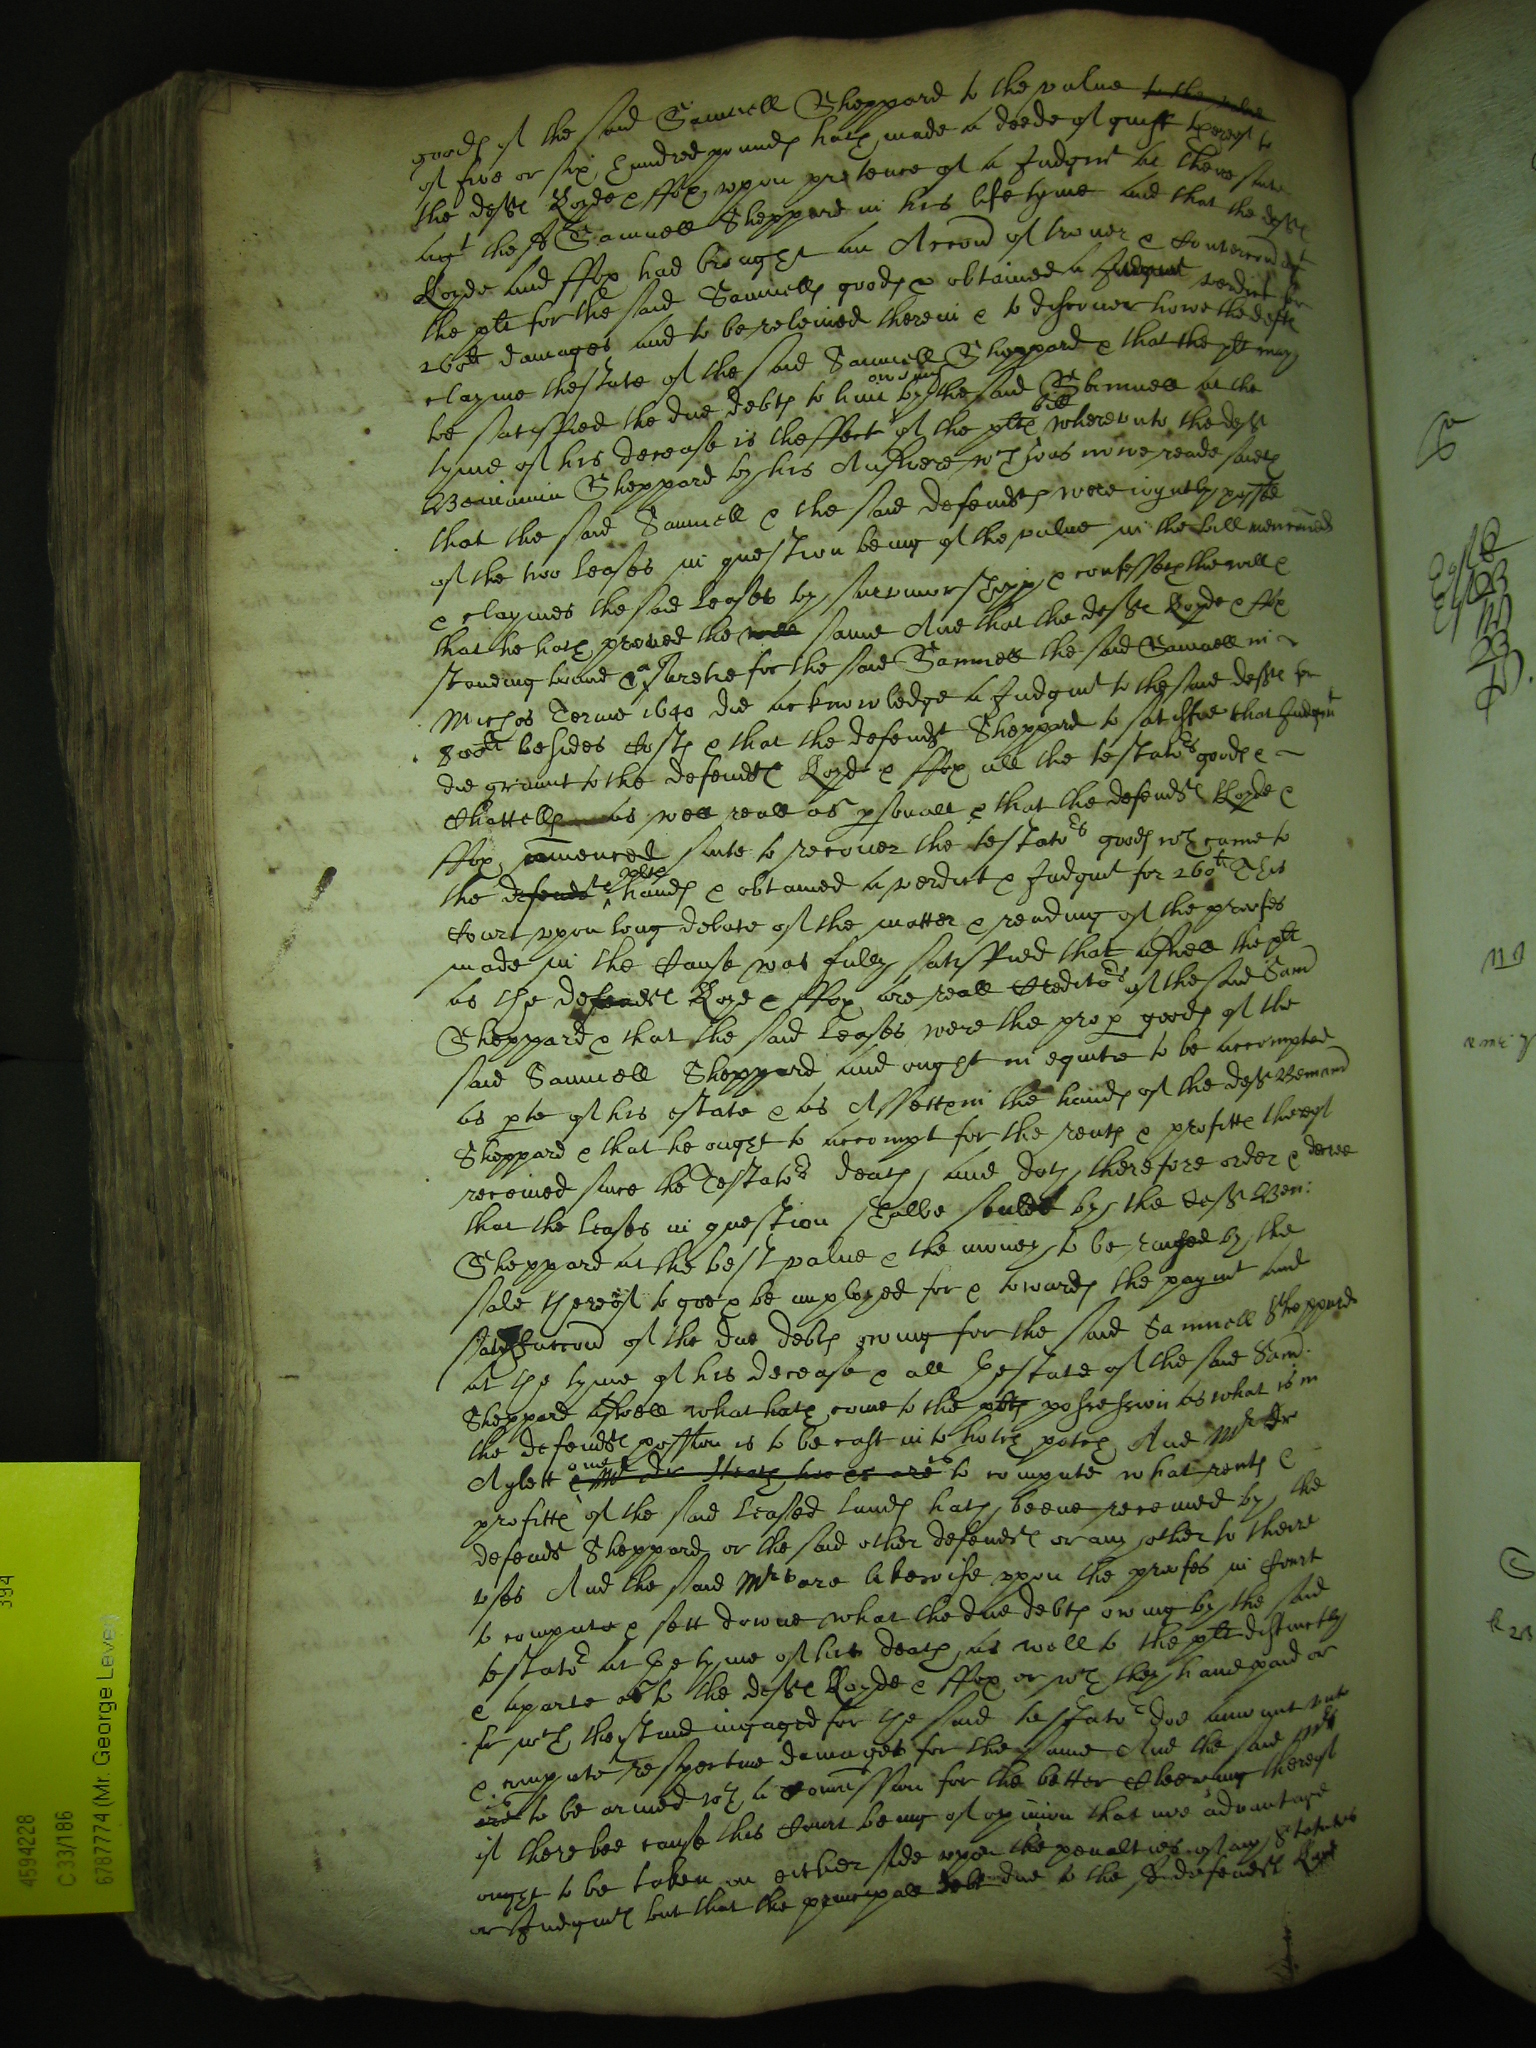 goods of the said Samuell Sheppard to the value to the value
of five or six hundred pounds hath made a deede of guift thereof to
the defts Royde & ffox upon pretence of a Judgmt at there suite
agt the sd Samuell Sheppard in his life tyme and that the defts
Royde and ffox had brought an Accond of trover & Convercond agt
the plt for the said Samuells goods & obtained a Judgmt verdict for
260li damages and to be releived therein & to discover howe the defts
clayme thestate of the said Samuell Sheppard & that the plt may
be satisfied the due debts to him owing by the said Samuell at the
tyme of his decease is theffect of the plts bill whereunto the deft
Beniamin Sheppard by his Answere wch was nowe reade saieth
that the said Samuell & the said defendts were ioyntly possed
of the two leases in question being of the value in the bill mencioned
& claymes the said leases by survivorshipp & confesseth the will &
that he hath proved the will same And that the defts Royde & ffox
standing bound as a suretie for the said Samuell the said Samuell in
Michas Terme 1640 did acknowledge a Judgmt to the said defts for
800li besides Costs & that the defendt Sheppard to satisfie that Judgmt
did graunt to the defendts Royd & ffox all the testators goods &
Chattells as well reall as psonall & that the defendts Royde &
ffox comenced suite to recover the testators goods wch came to
the defendts plts hands & obtained a verdict & Judgmt for 260li This
Court upon long debate of the matter & reading of the proofes
made in the Cause was fully satisfied that aswell the plt
as the defendts Royd & ffox are reall Creditors of the said Sam
Sheppard & that the said leases were the prop goods of the
said Samuell Sheppard and ought in equitie to be accompted
as pte of his estate & as Assetts in the hands of the deft Beniamin
Sheppard & that he ought to accompt for the rents & profitts thereof
received since the Testators death and doth therefore order & decree
that the leases in question shalbe soulde by the deft Ben:
Sheppard at the best value & the money to be raysed by the
sale thereof to goe & be imployed for & towards the paymt and
satisfaccond of the due debts owing for the said Samuell Sheppard
at the tyme of his decease & all thestate of the said Sam:
Sheppard aswell what hath come to the plts possession as what is in
the defendts possion is to be cast into hotch potch And Mr Dr
Aylett one & Mr Dr Heath two are to compute what rents &
profitts of the said leased lands hath beene received by the
defendt Sheppard or the said other defendts or any other to their
uses And the said Mrs are likewise upon the proofes in Court
to compute & sett downe what the due debts owing by the said
testator at the tyme of his death as well to the plt distinctly
& aparte as to the defts Royde & ffox or wch they have paid or
for wch they stand ingaged for the said testator doe amount unto
& compute respective damages for the same And the said Mrs
are to be armed wth a comission for the better cleering thereof
if there bee cause this Court being of opinion that noe advantage
ought to be taken on either side upon the penalties of any Statutes
or Judgmts but that the principall debt due to the sd defendts Royd
394
4594228
C 33/186
6787774 (Mr. George Leveq